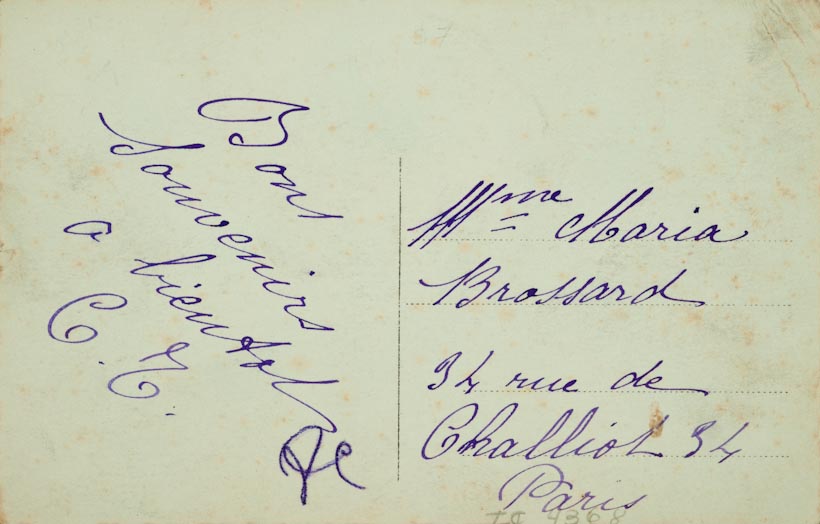 Bons
souvenirs
a bientot
C. E.
Mme Maria
Brossard
34 rue de
Challiot 34
Paris
TC 4368